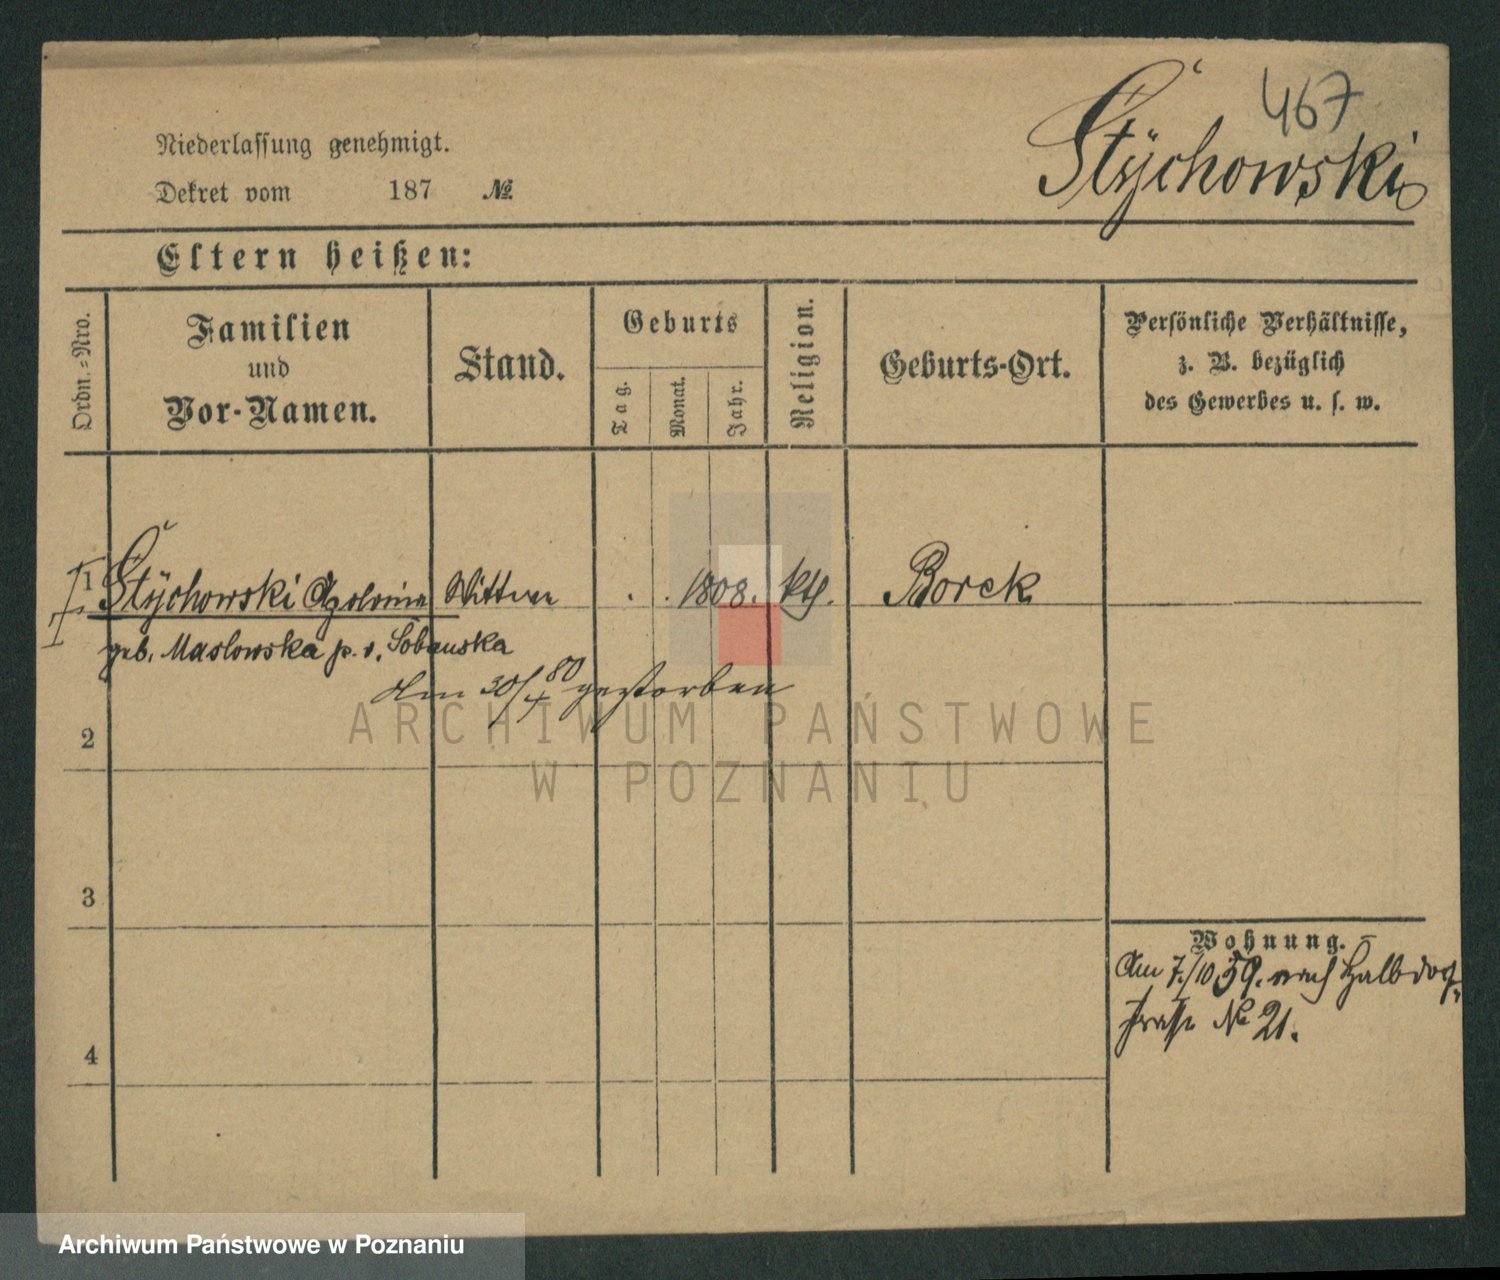 467
Stÿchowski
Niederlassung genehmigt.
Dekret vom 187 №.
Eltern heißen:
Ordn.=Nro.
Familien
und
Vor-Namen.
Stand.
Geburts
Tag.
Monat.
Jahr.
Religion.
Geburts-Ort.
Persönliche Verhältnisse,
z. B. bezüglich
des Gewerbes u. s. w.
1 Stÿchowski Apolonia Wittwe . . 1808. kth. Borek
geb. Maslowska p. v. Sobanska
den 30/4 80 gestorben
2
3
4
Wohnung.
Am 7./10 59. nach Halbdorf-
strasse № 21.
ARCHIWUM PAŃSTWOWE
W POZNANIU
Archiwum Państwowe w Poznaniu